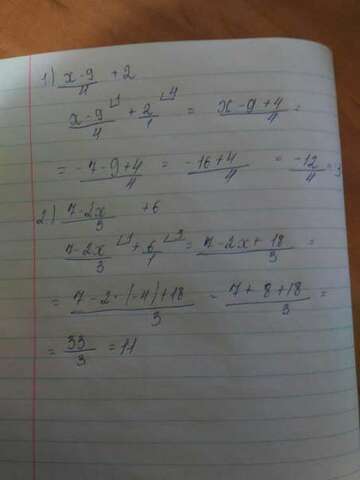 1) x-9/4 +2
x-9/4 ⌟1 + 2/1 ⌟4 = x-9+4/4 =
= -7-9+4/4 = -16+4/4 = -12/4 = 3
2) 7-2x/3 +6
7-2x/3 ⌟1 + 6/1 ⌟3 = 7-2x+18/3 =
= 7-2·(-4)+18/3 - 7+8+18/3 =
= 33/3 = 11